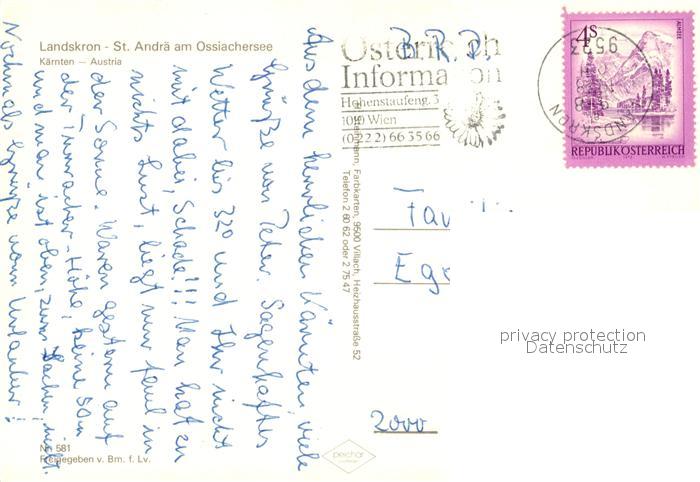 Landskron - St. Andrä am Ossiachersee
Kärnten — Austria
Aus dem herrlichen Kärnten viele
Grüße von Peter. Sagenhaftes
Wetter bis 32° und Ihr nicht
mit dabei, Schade!!! Man hat zu
nichts Lust, liegt nur faul in
der Sonne. Waren gestern auf
der Höhe, keine 50 m
und man ist oben, zum Lachen, nicht.
Nochmals Grüße vom Urlauber!
Nr. 581
Freigegeben v. Bm. f. Lv.
Farbkarten, 9500 Villach, Heizhausstraße 52
Telefon 2 60 62 oder 2 75 47
B. R. D.
Österreich
Information
Hohenstaufeng. 3
1010 Wien
(0 22 2) 66 35 66
9523
LANDSKRON
4S
ALMSEE
REPUBLIK ÖSTERREICH
2000
privacy protection
Datenschutz